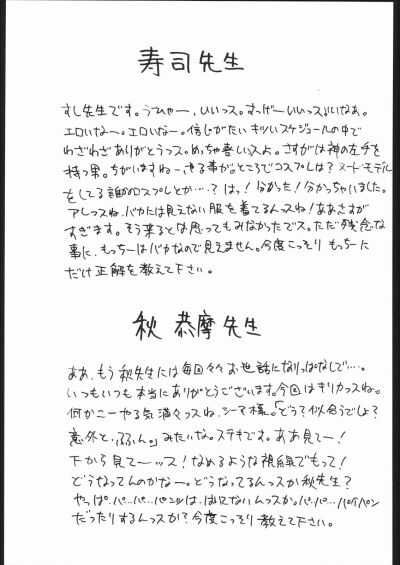 寿司先生
すし先生です。うひゃー、いいっス。すっげーいいっスよいいなぁ。
エロいなー。エロいなー。信じがたいキツいスケジュールの中で
わざわざありがとうっス。めっちゃ喜いっスよ。さすがは神の左手を
持つ男。ちがいますねーやる事が。ところでコスプレは？ヌードモデル
をしてる誰かのコスプレとか…？はっ！分かった！今分かっちゃいました。
アレっスね、バカには見えない服を着てるんっスね！ああさすが
すぎます。そう来るとは思ってもみなかったでス。ただ残念な
事に、もっちーはバカなので見えません。今度こっそりもっちーに
だけ正解を教えて下さい。
秋 恭摩先生
ああ、もう秋先生には毎回々々お世話になりっぱなしで…。
いつもいつも本当にありがとうございます。今回はきりカっスね。
何かこーやる気満々っスね、シーマ様。「どう？似合うでしょ？
意外と、ふふん。」みたいな。ステキです。ああ見てー！
下から見てーッス！なめるような視線でもって！
どうなってんのかなー。どうなってるんっスか秋先生？
やっぱ、パ…パ…パンツは、はいてないんっスか。パ、パ…パイパン
だったりするんっスか？今度こっそり教えて下さい。